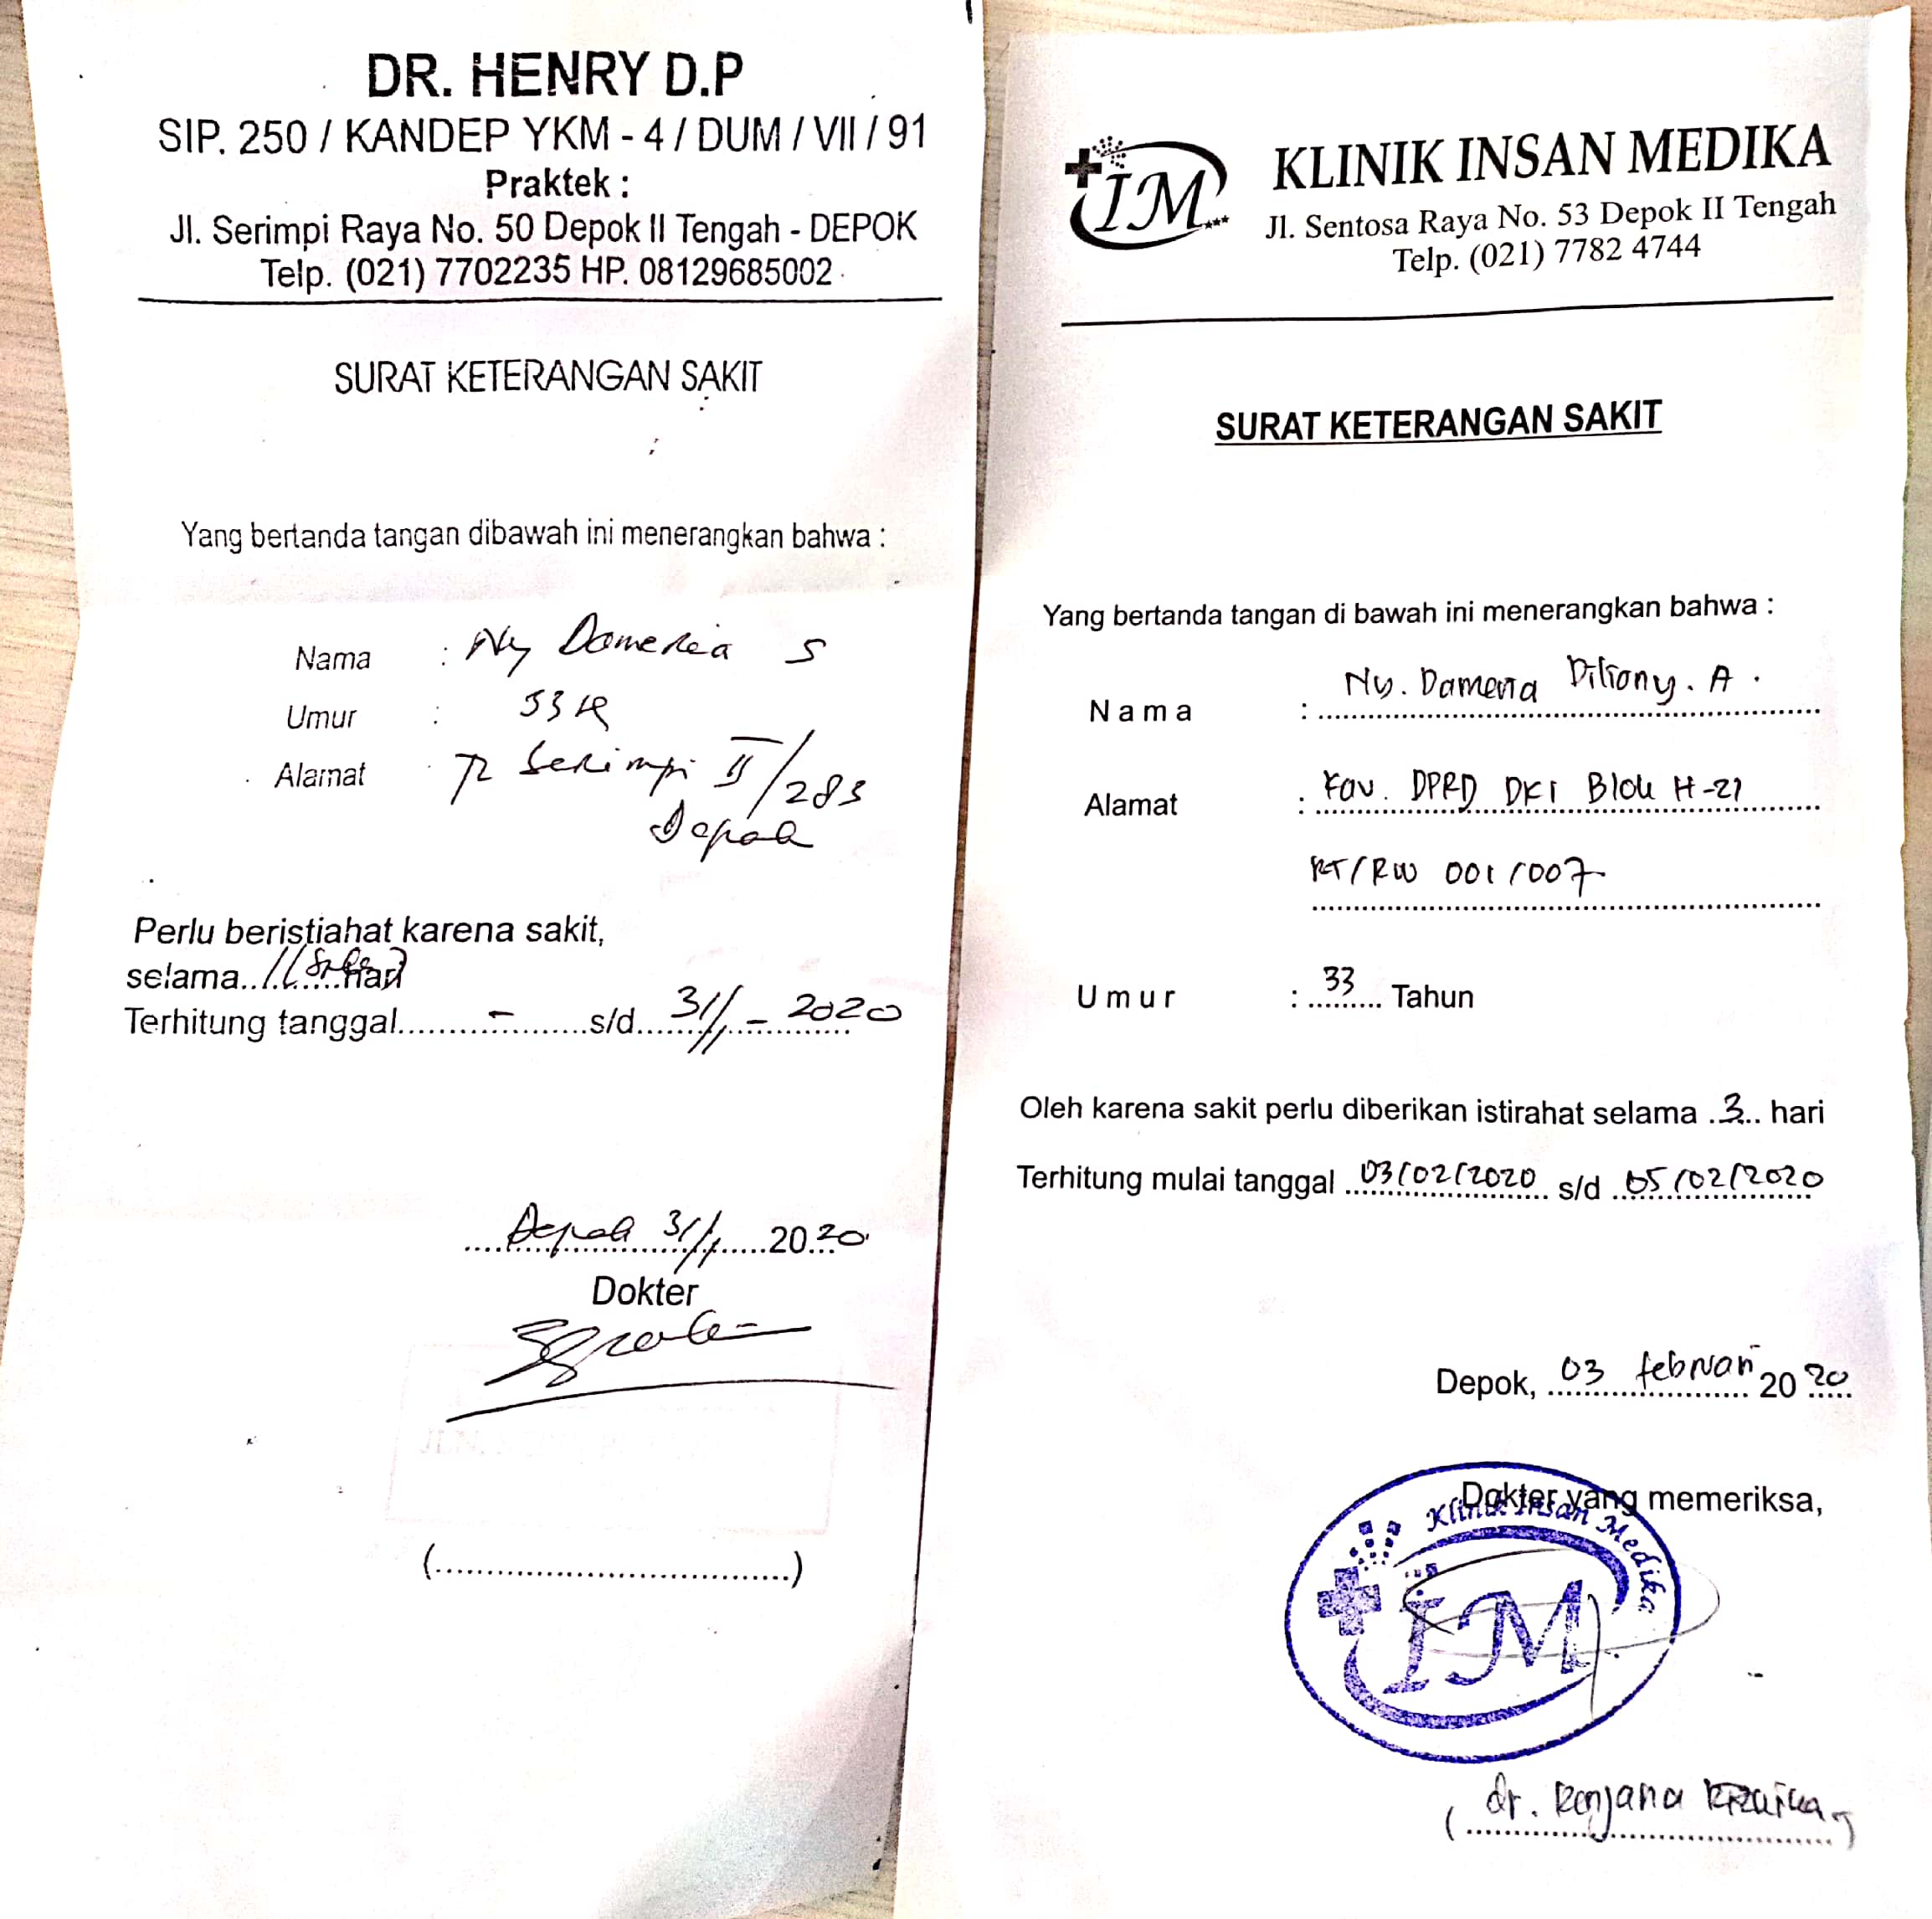 DR. HENRY D.P
SIP. 250 / KANDEP YKM - 4 / DUM / VII / 91
Praktek :
Jl. Serimpi Raya No. 50 Depok II Tengah - DEPOK
Telp. (021) 7702235 HP. 08129685002
SURAT KETERANGAN SAKIT
Yang bertanda tangan dibawah ini menerangkan bahwa :
Nama : Ny Domeria S
Umur : 33
Alamat : Serimpi II/283
Depok
Perlu beristiahat karena sakit,
selama 1 ( ) hari
Terhitung tanggal - s/d 31/1 - 2020
Depok 31/1 2020
Dokter
(....................................)
IM
KLINIK INSAN MEDIKA
Jl. Sentosa Raya No. 53 Depok II Tengah
Telp. (021) 7782 4744
SURAT KETERANGAN SAKIT
Yang bertanda tangan di bawah ini menerangkan bahwa :
Nama : Ny. Dameria A.
Alamat : Kav. DPRD DKI Blok H-21
RT/RW 001/007
Umur : 33 Tahun
Oleh karena sakit perlu diberikan istirahat selama 3 hari
Terhitung mulai tanggal 03/02/2020 s/d 05/02/2020
Depok, 03 februari 2020
Dokter yang memeriksa,
Klinik Insan Medika
IM
(dr. Renjana )